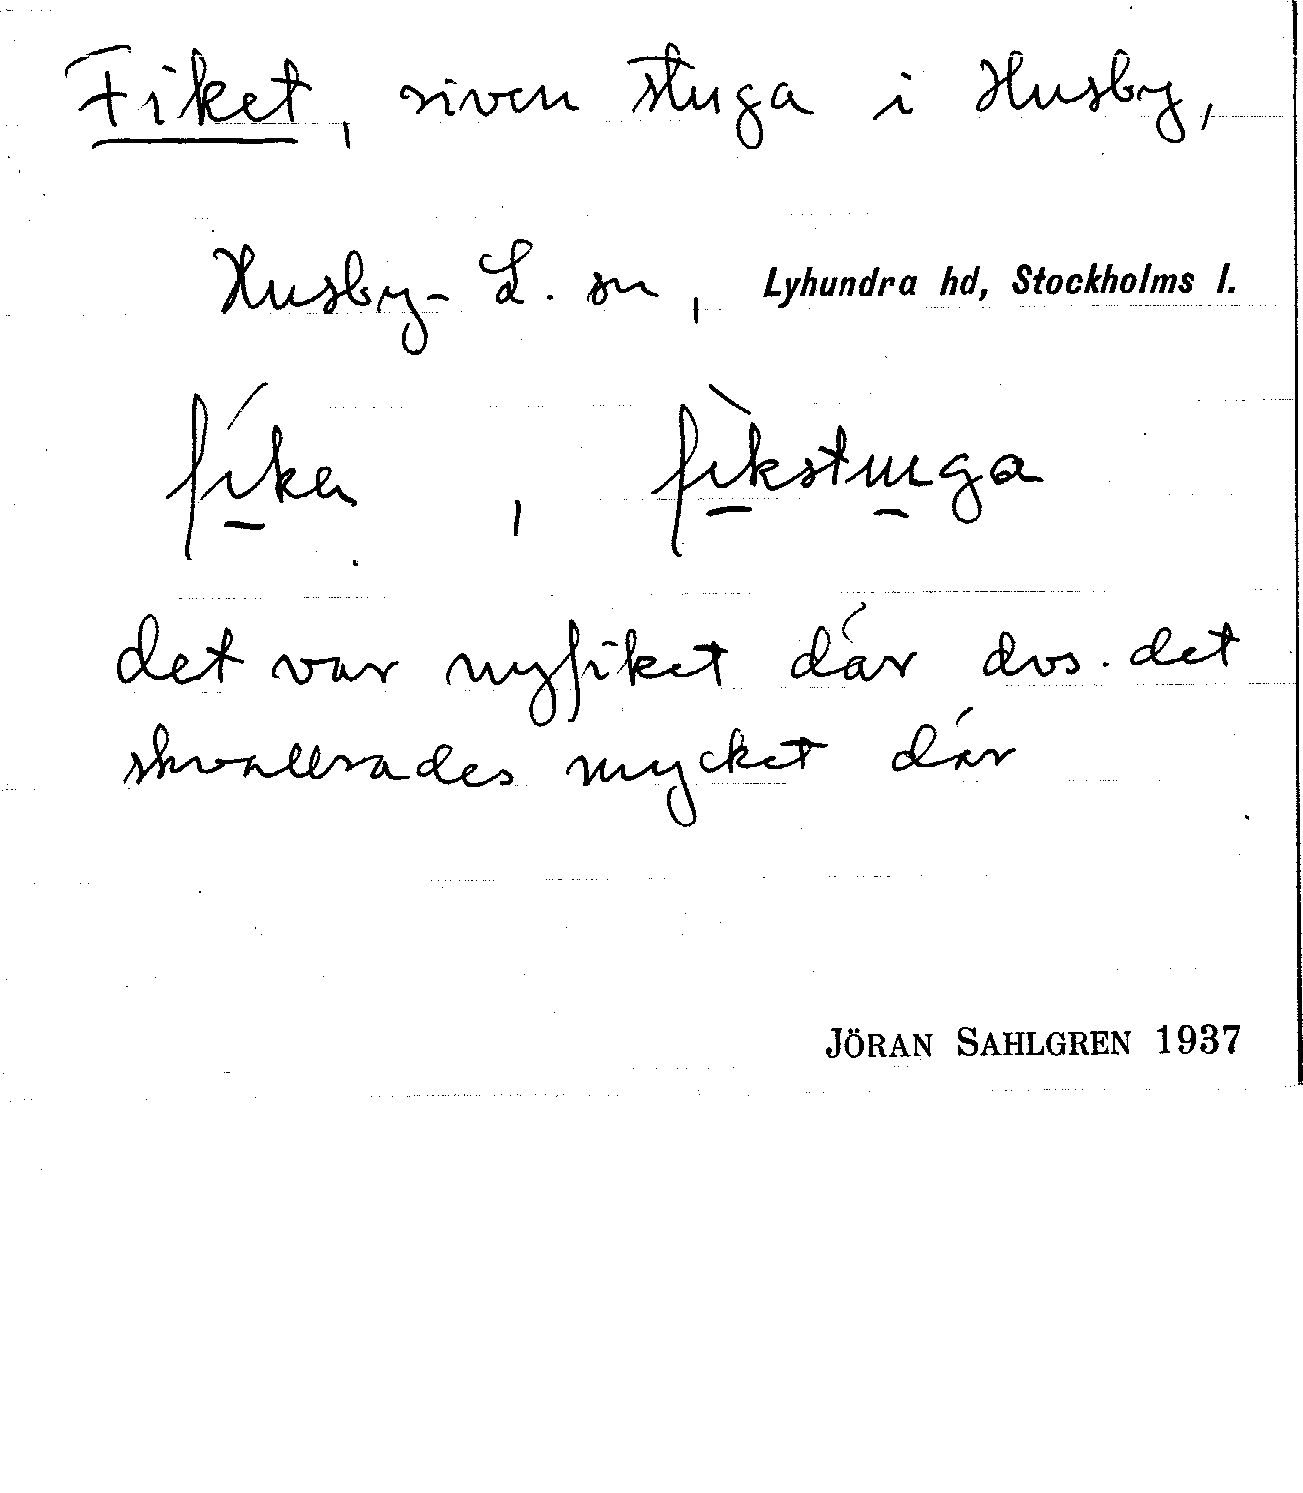 Fiket, riven stuga i Husby,
Husby-L. sn, Lyhundra hd, Stockholms l.
fíka, fìkstuga
det var nyfiket där dvs. det
skvallrades mycket där
JÖRAN SAHLGREN 1937